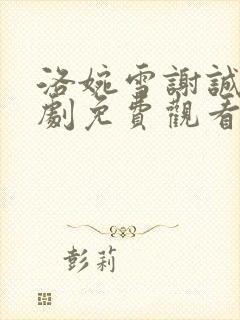 洛婉雪謝誠
劇免費觀看
彭莉